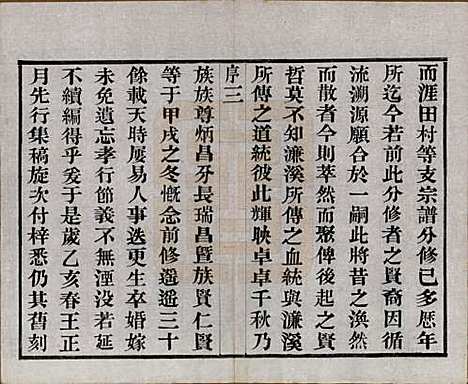 而涯田村等支宗譜分修已多歷年
所迄今若前此分修者之賢裔因循
流溯源願合於一嗣此將昔之渙然
而散者今則萃然而聚俾後起之賢
哲莫不知濂溪所傳之血統與濂溪
所傳之道統彼此輝映卓卓千秋乃
序三
族族尊炳昌牙長瑞昌暨族賢仁賢
等于甲戌之冬慨念前修遥遥三十
餘載天時屢易人事迭更生卒婚嫁
未免遺忘孝行節義不無湮没若延
不續編得乎爰于是歲乙亥春王正
月先行集稿旋次付梓悉仍其舊刻